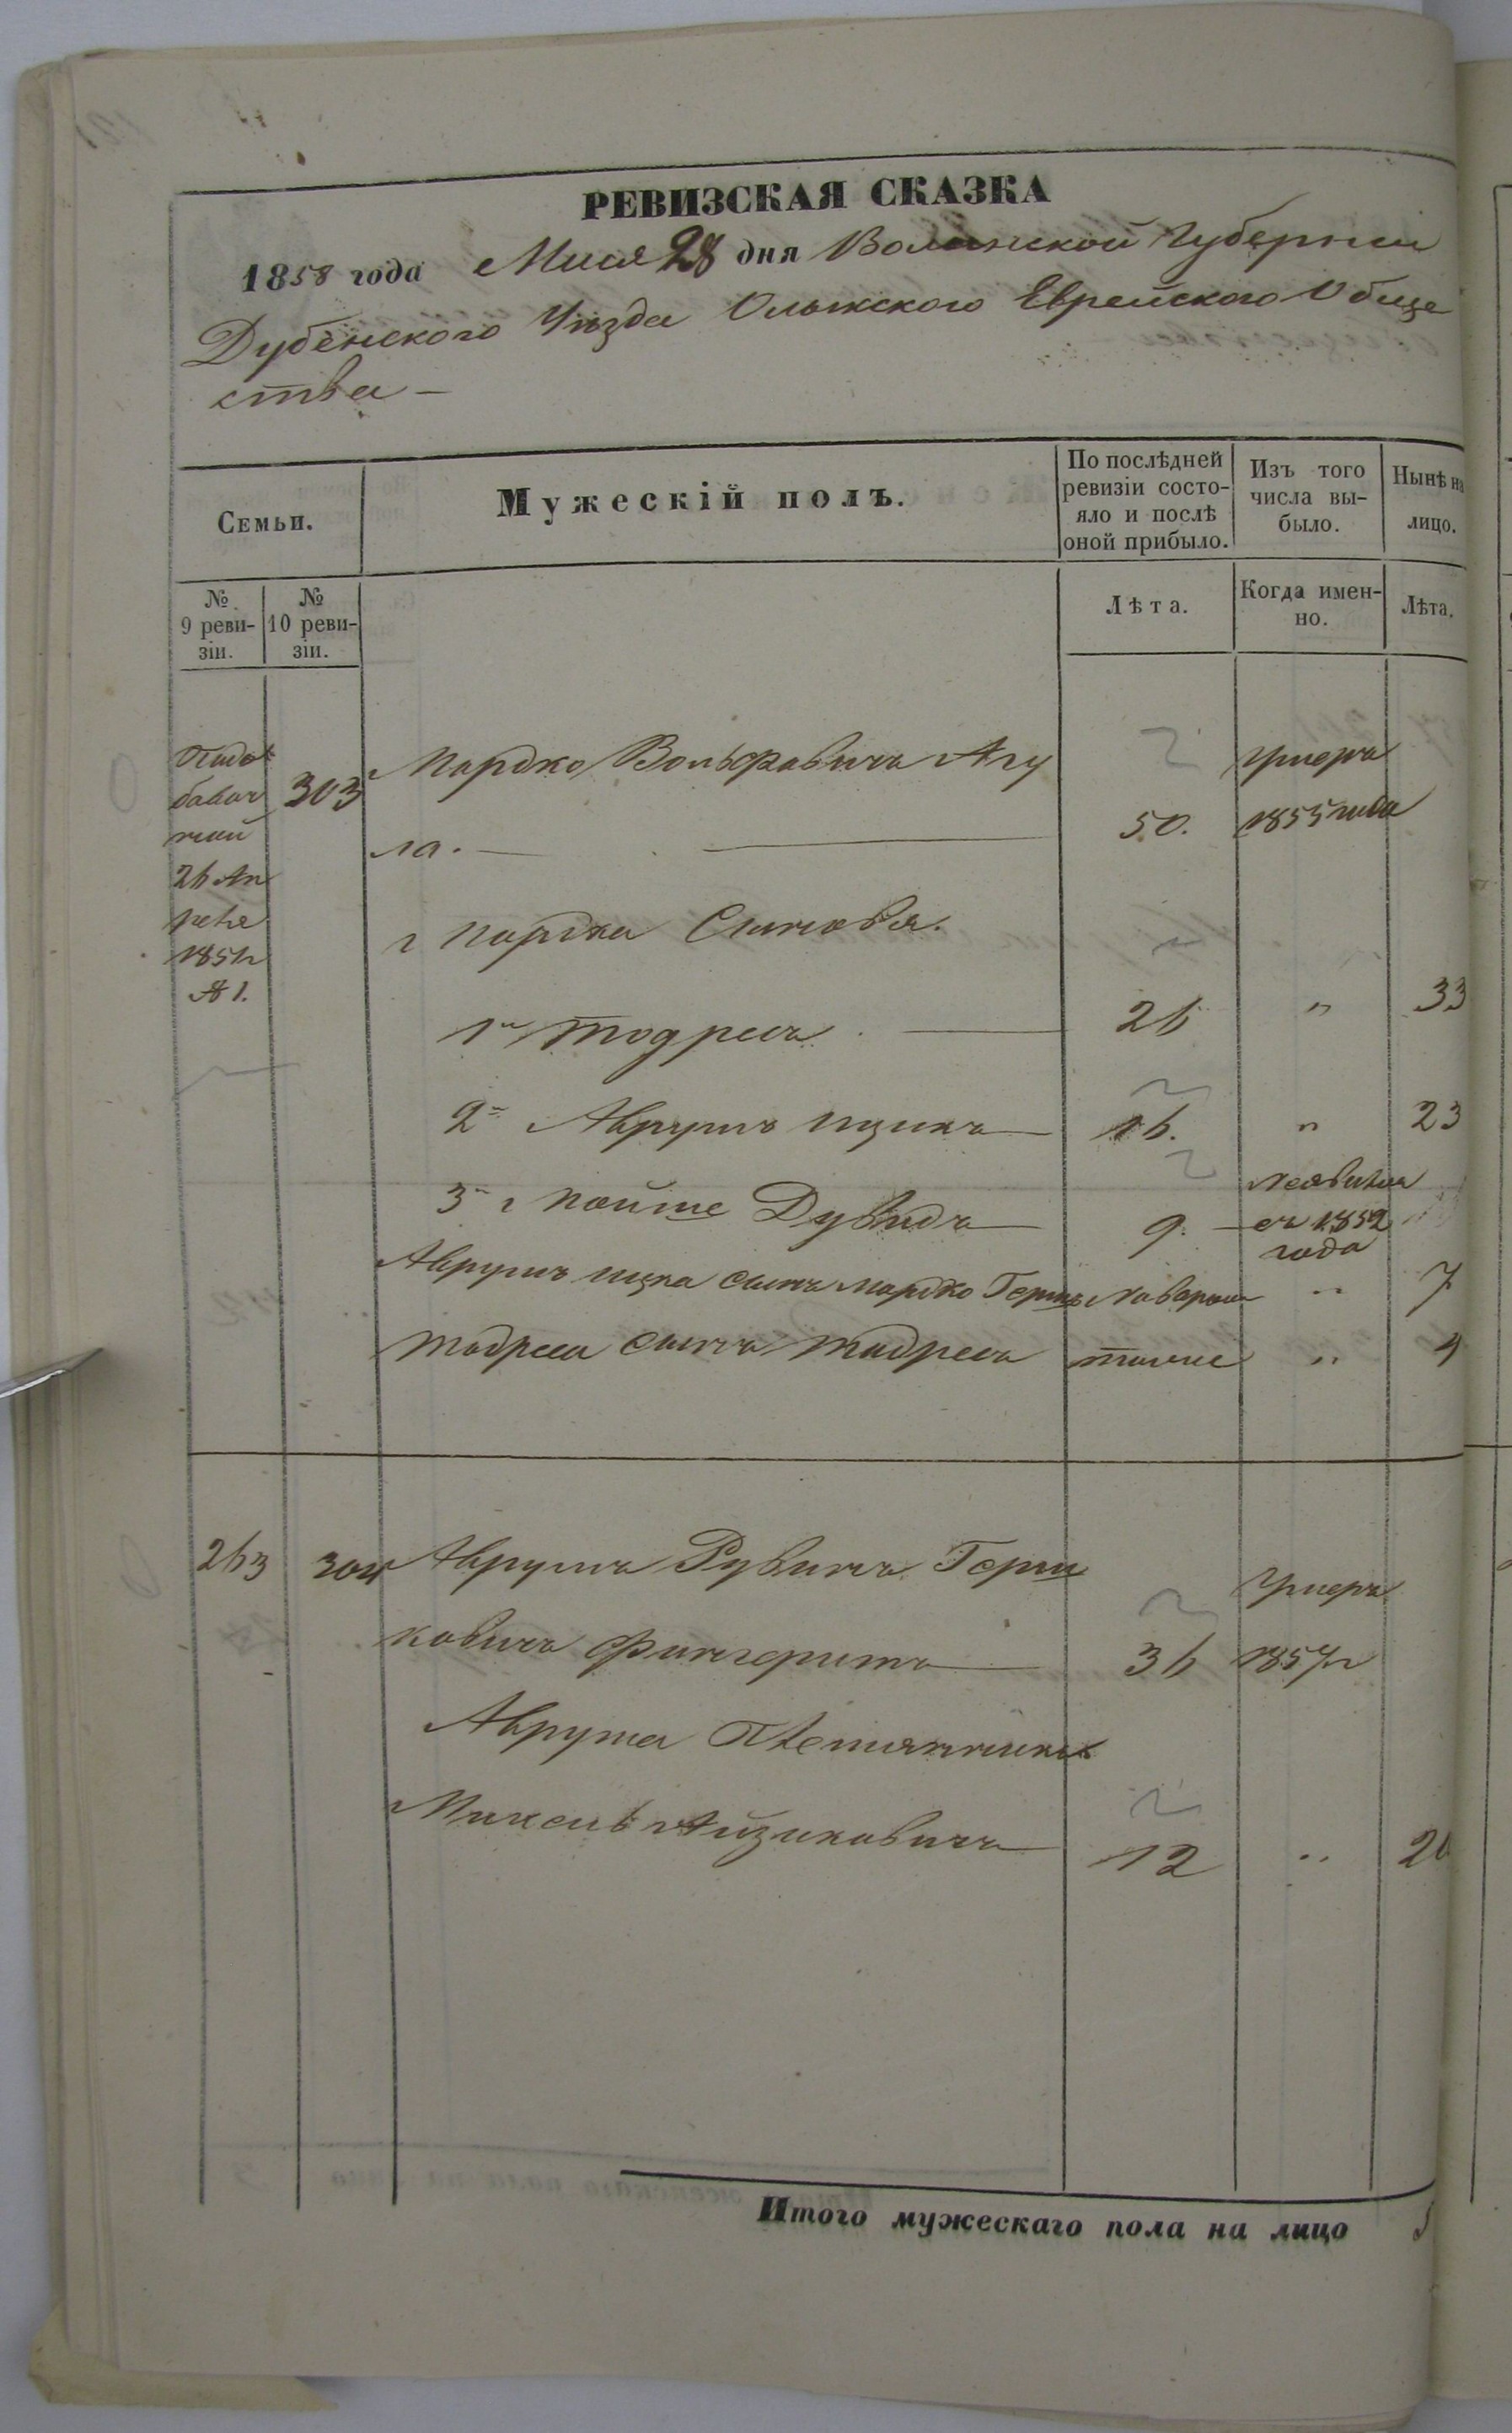 РЕВИЗСКАЯ СКАЗКА
1858 года Мая 28 дня Волынской Губернии
Дубенского Уѣзда Олыкского Еврейского Обще
ства —
Семьи.
Мужескій полъ.
По послѣдней
ревизіи состо-
яло и послѣ
оной прибыло.
Изъ того
числа вы-
было.
Нынѣ на
лицо.
№
9 реви-
зіи.
№
10 реви-
зіи.
Лѣта.
Когда имен-
но.
Лѣта.
303
Мордко Вольфовичъ Агу
Умеръ
ла. —
50.
1855 года
26 Ап
реля
1851 г
Мордка Сыновья.
1й Тодресъ
26
"
33
2й Аврумъ Ицикъ
16.
"
23
3й Мойше Дувидъ
9.
неявился
съ 1852
года
Аврумъ Ицка сынъ Мордко Герш
новорож
"
7
Тодреса сынъ Тодресъ
тоже
"
4
263
304
Аврумъ Рувинъ Герш
Умеръ
ковичъ Фингеритъ
36
1857 г
Аврума Племянникъ
Айзиковичъ
12
"
20
Итого мужескаго пола на лицо
5